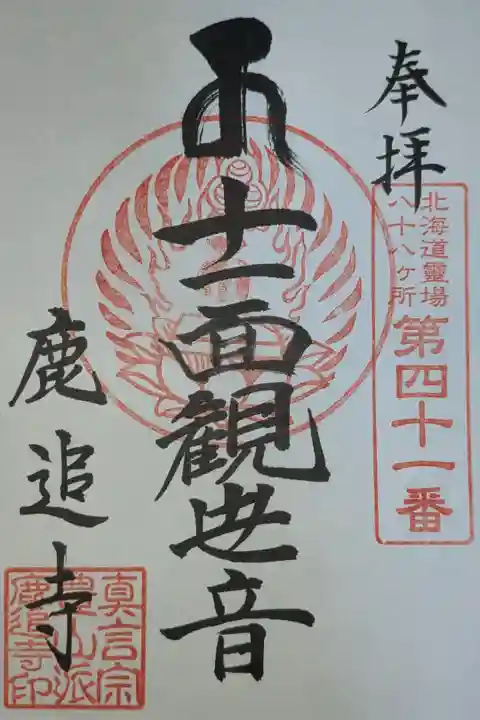 奉拝
北海道靈場
八十八ヶ所
第四十一番
十一面観世音
鹿追寺
真言宗
豊山派
鹿追寺印